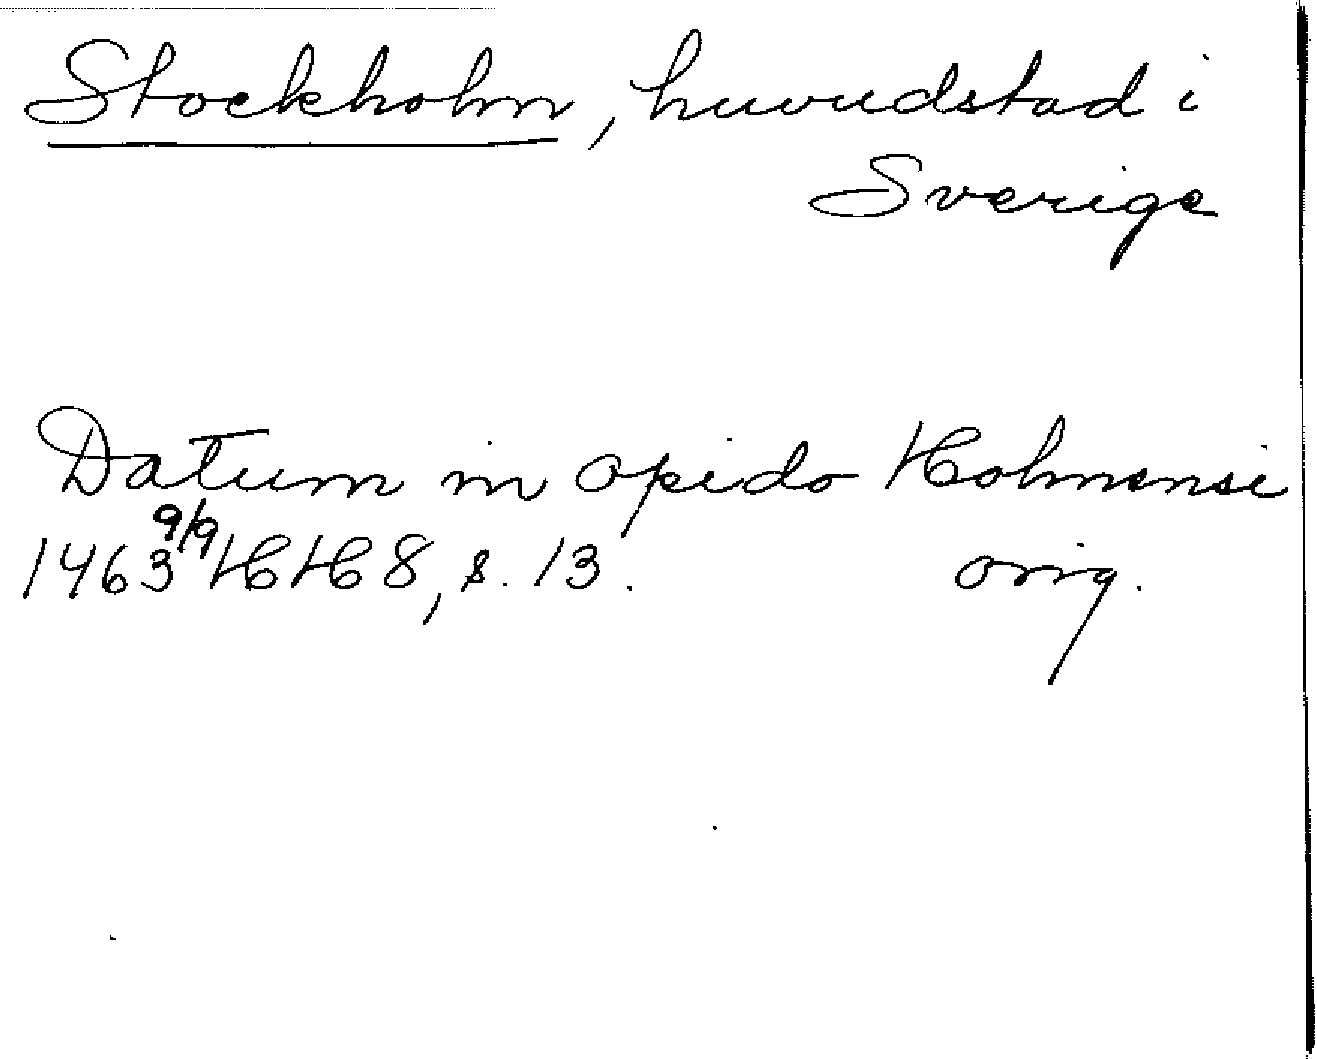 Stockholm, huvudstad i
Sverige
Datum in opido Holmensi
1463 9/9 HH 8, s. 13. orig.